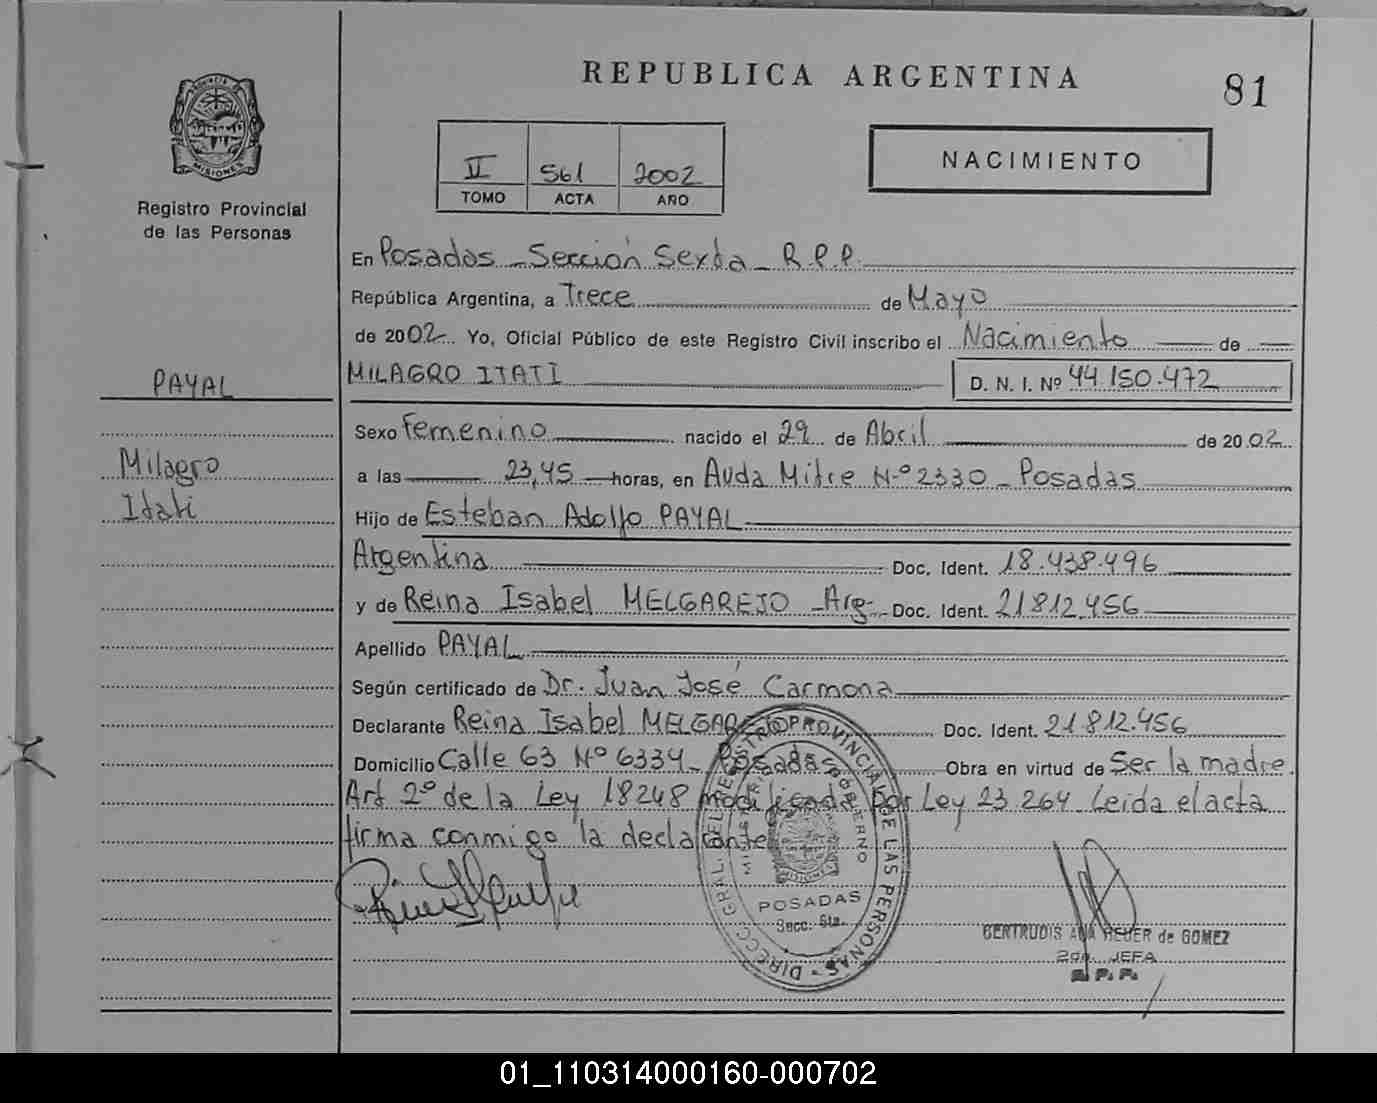 REPUBLICA ARGENTINA
81
PROVINCIA DE
MISIONES
Registro Provincial
de las Personas
II 561 2002
TOMO ACTA AÑO
NACIMIENTO
En Posadas - Sección Sexta - R.P.P.
República Argentina, a Trece de Mayo
de 2002 Yo, Oficial Público de este Registro Civil inscribo el Nacimiento de
MILAGRO ITATI D. N. I. Nº 44.150.472
PAYAL
Milagro
Itati
Sexo Femenino nacido el 29 de Abril de 2002
a las 23,45 horas, en Avda Mitre Nº 2330 - Posadas
Hijo de Esteban Adolfo PAYAL
Argentina Doc. Ident. 18.438.496
y de Reina Isabel MELGAREJO - Arg- Doc. Ident. 21812.456
Apellido PAYAL
Según certificado de Dr. Juan José Carmona
Declarante Reina Isabel MELGAREJO Doc. Ident. 21.812.456
Domicilio Calle 63 Nº 6334 - Posadas Obra en virtud de Ser la madre.
Art 2º de la Ley 18248 modificada por Ley 23.264 Leida el acta
firma conmigo la declarante
DIRECC. GRAL. DEL REGISTRO PROVINCIAL DE LAS PERSONAS
MINISTERIO DE GOBIERNO
MISIONES
POSADAS
Secc. 6ta.
GERTRUDIS ANA HEUER de GOMEZ
2da. JEFA
R.P.P.
01_110314000160-000702